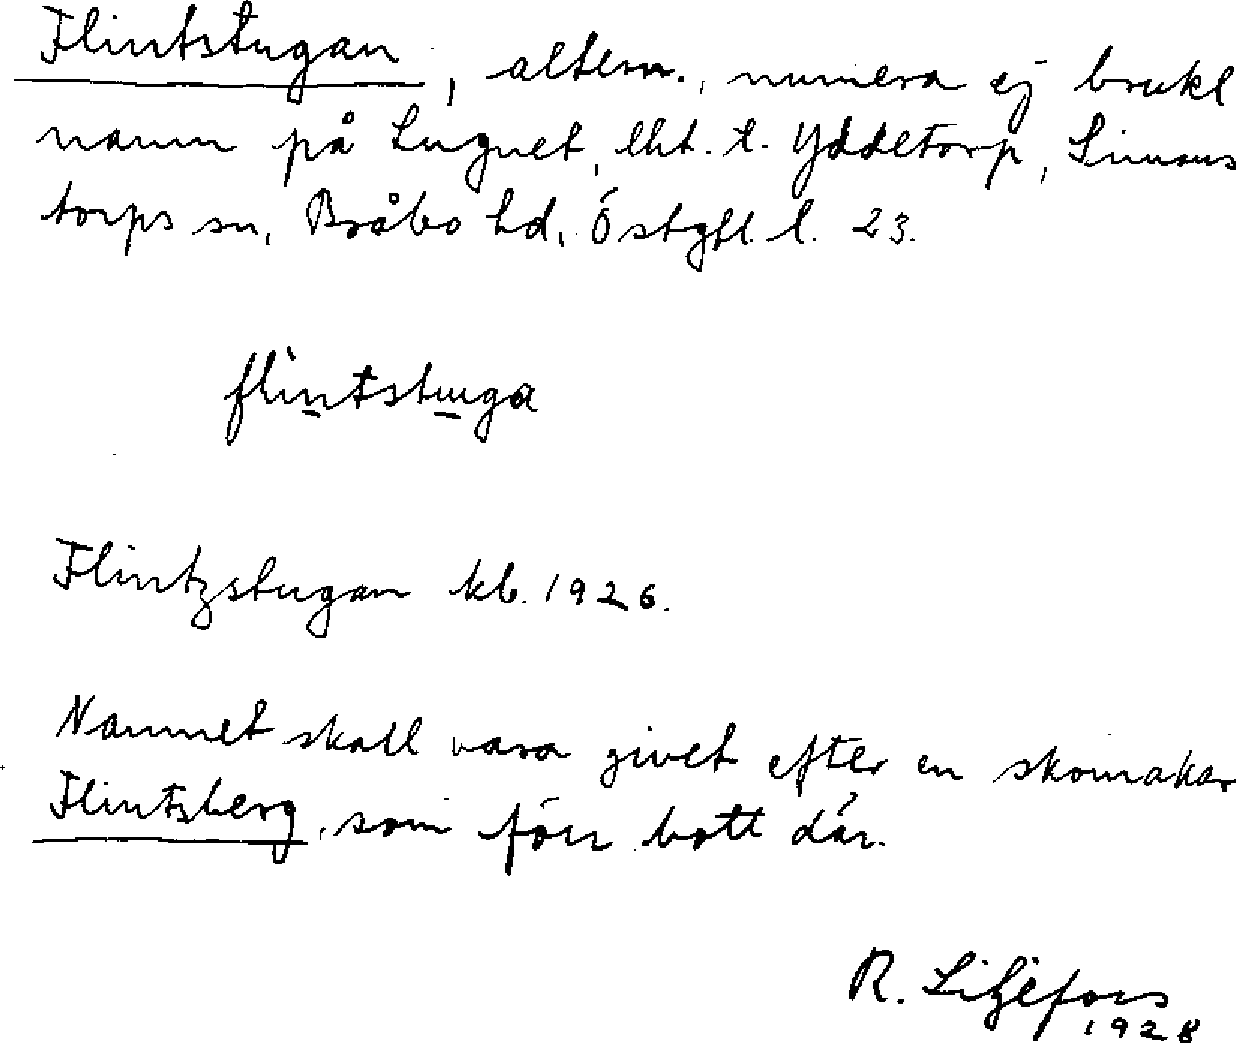 Flintstugan, altern., numera ej brukl
namn på Lugnet, lht. t. Yddetorp, Simons
torps sn, Bråbo hd, Östgtl. l. 23.
flintstuga
Flintzstugan kb. 1926.
Namnet skall vara givet efter en skomakar
Flintsberg, som förr bott där.
R. Liljefors
1928